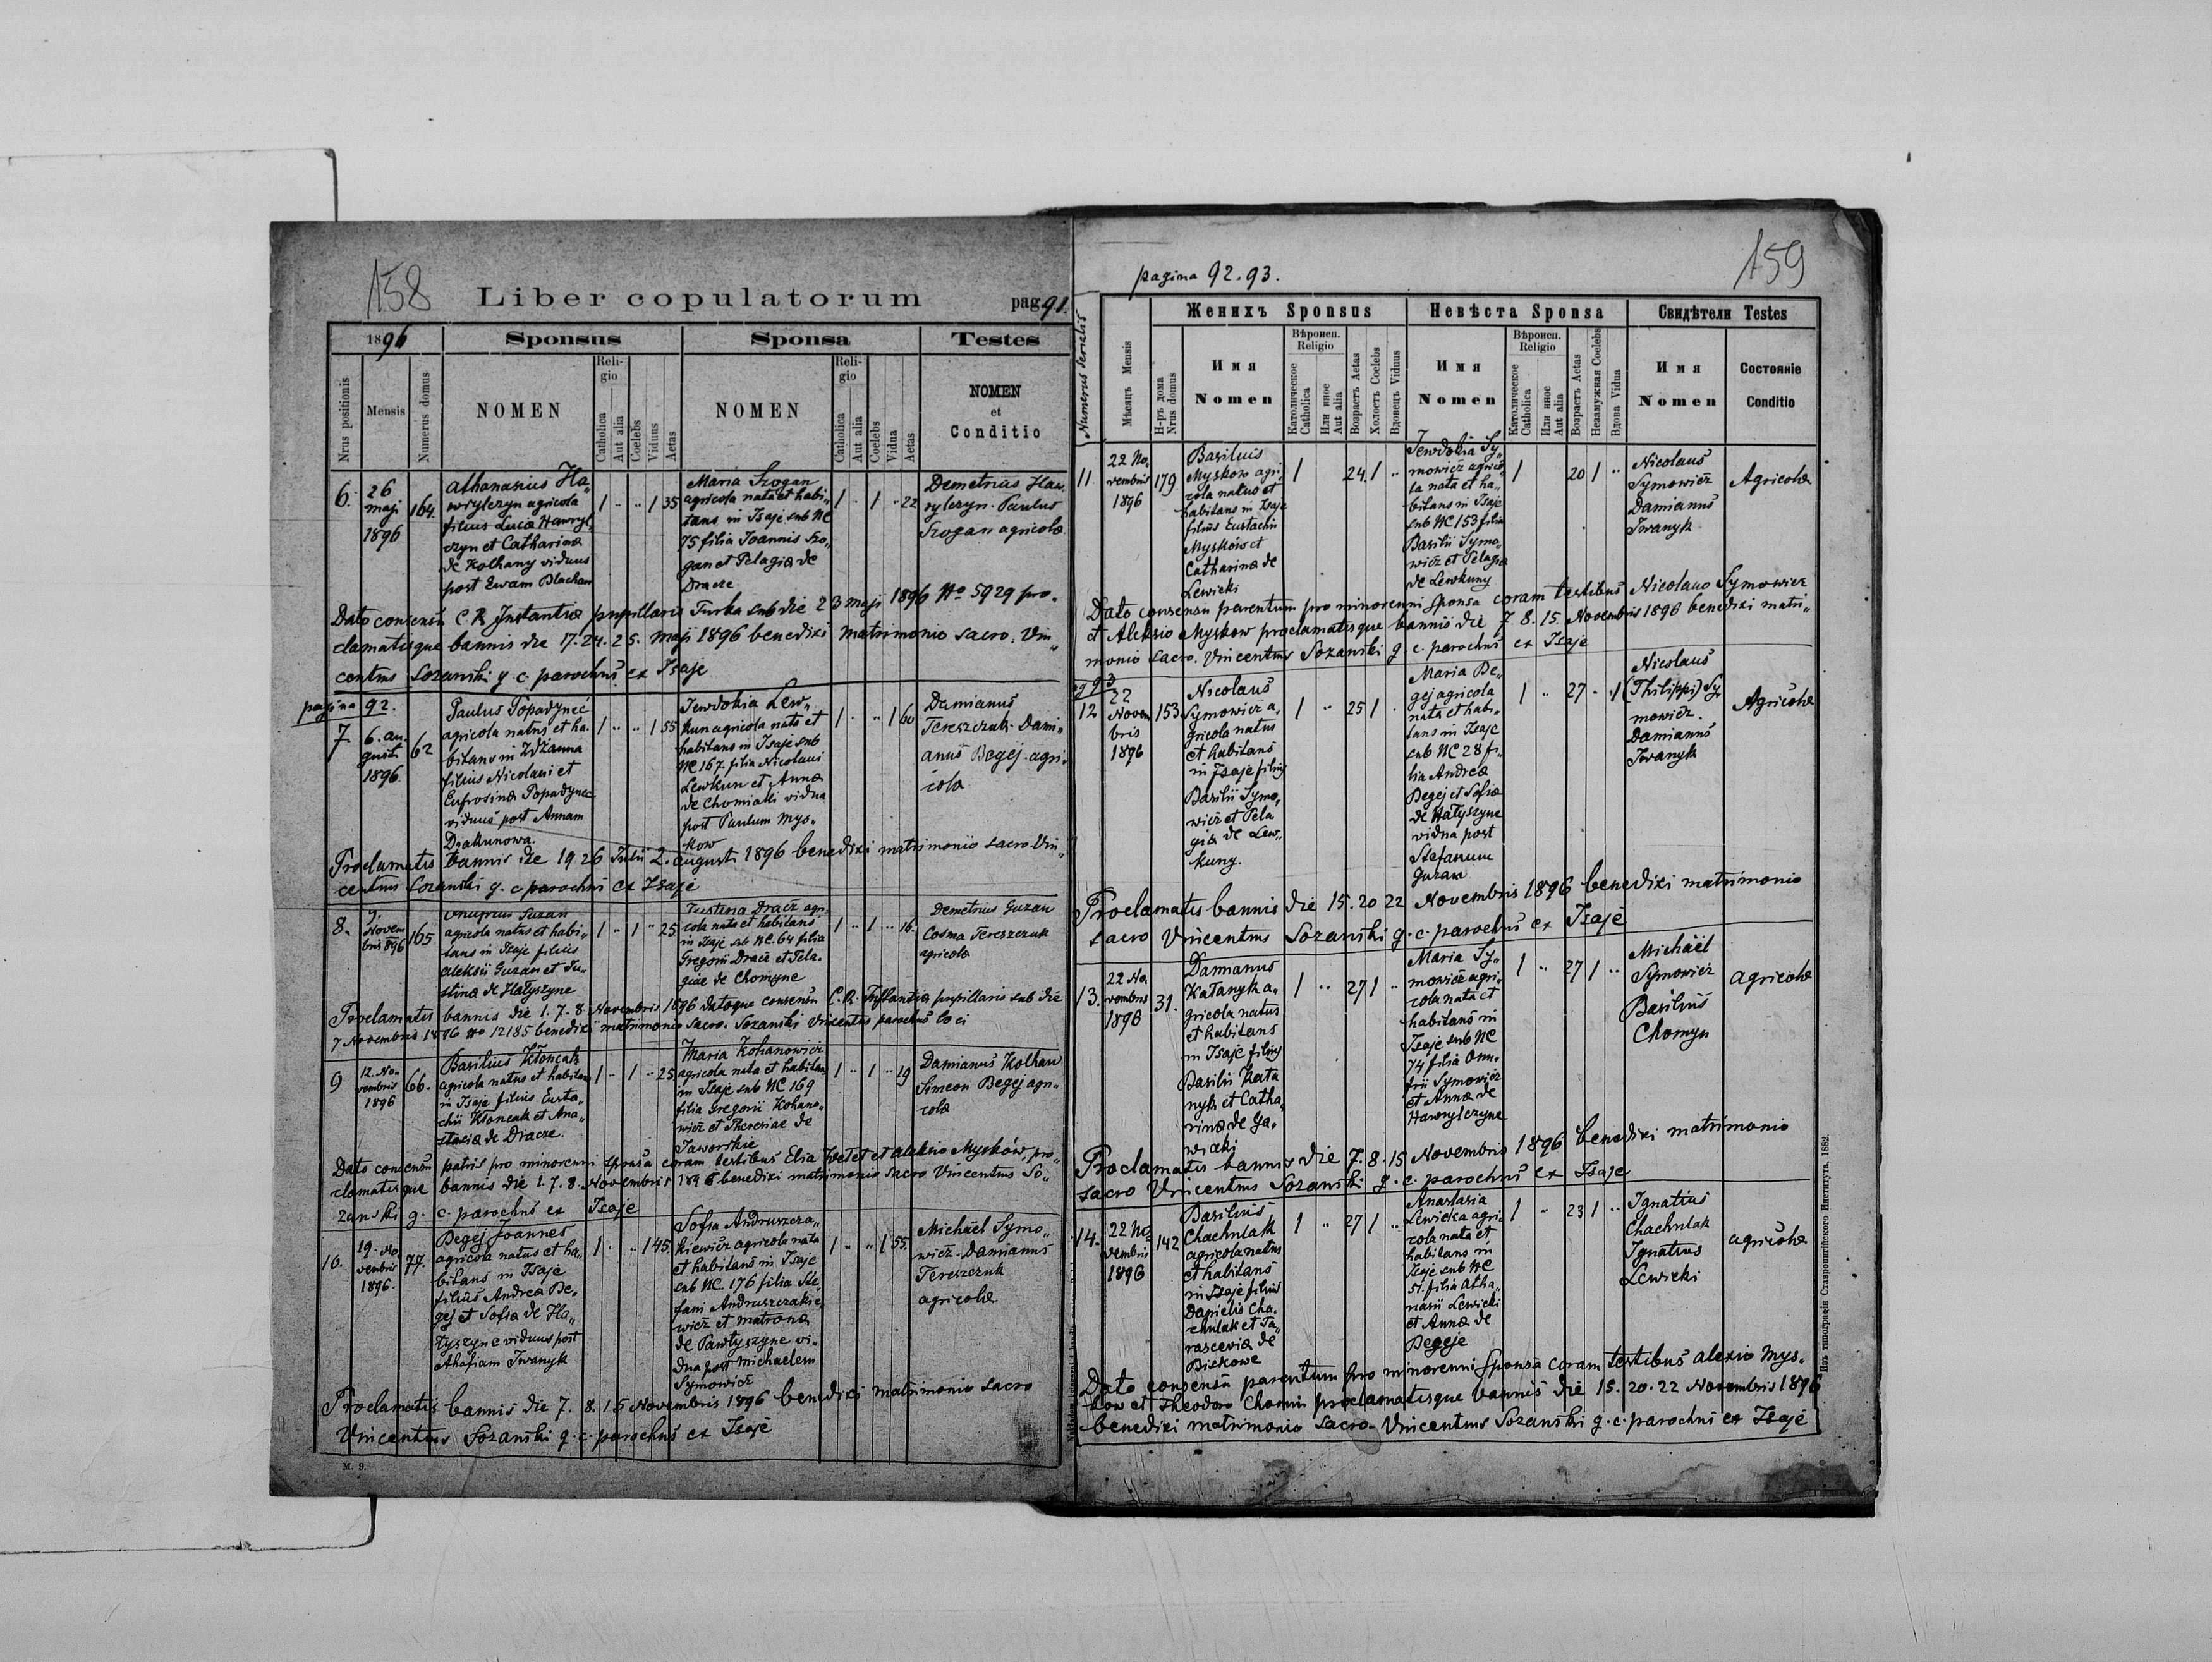 158
Liber copulatorum
pag. 91.
1896
Sponsus
Sponsa
Testes
Nrus positionis
Mensis
Numerus domus
NOMEN
Religio
Catholica
Aut alia
Coelebs
Viduus
Aetas
NOMEN
Religio
Catholica
Aut alia
Coelebs
Vidua
Aetas
NOMEN
et
Conditio
6.
26
maji
1896
164.
Athanasius Ha„
wrylczyn agricola
filius Lucæ Hawryl
czyn et Catharinæ
de Kolhany viduus
post Ewam Blachan
1 " " 1 35
Maria Szogan
agricola nata et habi„
tans in Isaje sub NC
75 filia Joannis Szo„
gan et Pelagiæ de
Dracze
1 1 " 22
Demetrius Haw
rylczyn. Paulus
Szogan agricolæ
Dato consensu C. R. Instantiæ pupillaris Turka sub die 23 maji 1896 No 5929 pro„
clamatisque bannis die 17. 24. 25. Maji 1896 benedixi matrimonio sacro. Vin„
centius Sozanski g. c. parochus ex Isaje
pagina 92.
7.
6. au„
gusti
1896.
62
Paulus Popadynec
agricola natus et ha„
bitans in Zdżanna
filius Nicolaui et
Eufrosinæ Popadynec
viduus post Annam
Drakunowa.
1 " " 1 55
Jewdokia Lew„
kun agricola nata et
habitans in Isaje sub
NC 167. filia Nicolaui
Lewkun et Annæ
de Chomiaki vidua
post Paulum Mys„
kow
1 " " 1 60
Damianus
Tereszczuk. Dami„
anus Begej. agri„
colæ
Proclamatis bannis die 19 26 Julii 2. augusti 1896 benedixi matrimonio sacro. Vin„
centius Sozanski g. c. parochus ex Isaje
8.
9.
Novem
bris 1896
165
Onuprius Guzan
agricola natus et habi„
tans in Isaje filius
Aleksii Guzan et Ju„
stinæ de Hałyszyne
1 " 1 " 25
Justina Dracz agri„
cola nata et habitans
in Isaje sub NC. 64 filia
Gregorii Dracz et Pela„
giæ de Chomyne
1 " 1 " 16.
Demetrius Guzan
Cosma Tereszczuk
agricolæ
Proclamatis bannis die 1. 7. 8. Novembris 1896 datoque consensu C. R. Instantiæ pupillaris sub die
7 Novembris 1896 No 12185 benedixi matrimonio sacro. Sozanski Vincentius parochus loci
9
12. No„
vembris
1896
66.
Basilius Kłoncak
agricola natus et habitans
in Isaje filius Eusta„
chii Kłoncak et Ana„
stasiæ de Dracze.
1 " 1 " 25
Maria Kohanowicz
agricola nata et habitans
in Isaje sub NC 169
filia Gregorii Kohano„
wicz et Theresiae de
Jaworskie
1 " 1 " 19
Damianus Kolhan
Simeon Begej agri„
colæ
Dato consensu patris pro minorenni sponsa coram testibus Elia Wetet et Aleksio Myskow, pro„
clamatisque bannis die 1. 7. 8. Novembris 1896 benedixi matrimonio sacro Vincentius So„
zanski g. c. parochus ex Isaje
10.
19. No„
vembris
1896.
77.
Begej Joannes
agricola natus et ha„
bitans in Isaje
filius Andreæ Be„
gej et Sofiæ de Ha„
łyszyne viduus post
Ahafiam Iwanyk
1 " " 1 45.
Sofia Andruszcza„
kiewicz agricola nata
et habitans in Isaje
sub NC. 176 filia Ste„
fani Andruszczakie„
wicz et Matronæ
de Pawłyszyne vi„
dua post Michaelem
Symowicz
1 " " 1 55.
Michael Symo„
wicz. Damianus
Tereszczuk
agricolæ
Proclamatis bannis die 7. 8. 15 Novembris 1896 benedixi matrimonio sacro
Vincentius Sozanski g. c. parochus ex Isaje
M. 9.
159
pagina 92. 93.
Женихъ Sponsus
Невѣста Sponsa
Свидѣтели Testes
Numerus serialis
Мѣсяцъ Mensis
Н-ръ дома
Nrus domus
Имя
Nomen
Вѣроисп.
Religio
Католическое
Catholica
Или иное
Aut alia
Возрастъ Aetas
Холостъ Coelebs
Вдовецъ Viduus
Имя
Nomen
Вѣроисп.
Religio
Католическое
Catholica
Или иное
Aut alia
Возрастъ Aetas
Незамужная Coelebs
Вдова Vidua
Имя
Nomen
Состояніе
Conditio
11
22 No„
vembris
1896
179
Basilius
Myskow agri„
cola natus et
habitans in Isaje
filius Eustachii
Myskow et
Catharinæ de
Lewicki
1 24 1 "
Jewdokia Sy„
mowicz agrico„
la nata et ha„
bitans in Isaje
sub NC 153 filia
Basilii Symo„
wicz et Pelagiæ
de Lewkuny
1 20 1 "
Nicolaus
Symowicz
Damianus
Iwanyk
Agricolæ
Dato consensu parentum pro minorenni sponsa coram testibus Nicolauo Symowicz
et Aleksio Myskow proclamatisque bannis die 7. 8. 15. Novembris 1896 benedixi matri„
monio sacro. Vincentius Sozanski g. c. parochus ex Isaje
pg 93
12
22
Novem
bris
1896
153
Nicolaus
Symowicz a„
gricola natus
et habitans
in Isaje filius
Basilii Symo„
wicz et Pela„
giæ de Lew„
kuny.
1 " 25 1
Maria Be„
gej agricola
nata et habi„
tans in Isaje
sub NC 28 fi„
lia Andreæ
Begej et Sofiæ
de Hałyszyne
vidua post
Stefanum
Guzan
1 " 27 " 1
Nicolaus
(Philippi) Sy„
mowicz.
Damianus
Iwanyk
Agricolæ
Proclamatis bannis die 15. 20 22 Novembris 1896 benedixi matrimonio
sacro Vincentius Sozanski g. c. parochus ex Isaje
13.
22 No„
vembris
1896
31.
Damianus
Katanyk a„
gricola natus
et habitans
in Isaje filius
Basilii Kata
nyk et Catha„
rinæ de Ga„
wiaki
1 " 27 1 "
Maria Sy„
mowicz agri„
cola nata et
habitans in
Isaje sub NC
74 filia Onu„
frii Symowicz
et Annæ de
Hawrylczyne
1 " 27 1 "
Michäel
Symowicz
Basilius
Chomyn
agricolæ
Proclamatis bannis die 7. 8. 15 Novembris 1896 benedixi matrimonio
sacro Vincentius Sozanski g. c. parochus ex Isaje
14.
22 No„
vembris
1896
142
Basilius
Chachulak
agricola natus
et habitans
in Isaje filius
Danielis Cha„
chulak et Pa„
rasceviæ de
Bickowe
1 " 27 1 "
Anastasia
Lewicka agri„
cola nata et
habitans in
Isaje sub NC
51. filia Atha„
nasii Lewicki
et Annæ de
Begeje
1 " 23 1 "
Ignatius
Chachulak
Ignatius
Lewicki
agricolæ
Dato consensu parentum pro minorenni sponsa coram testibus Alexio Mys„
kow et Theodoro Chomin proclamatisque bannis die 15. 20. 22 Novembris 1896
benedixi matrimonio sacro. Vincentius Sozanski g. c. parochus ex Isaje
Изъ типографіи Ставропигійского Института, 1882.